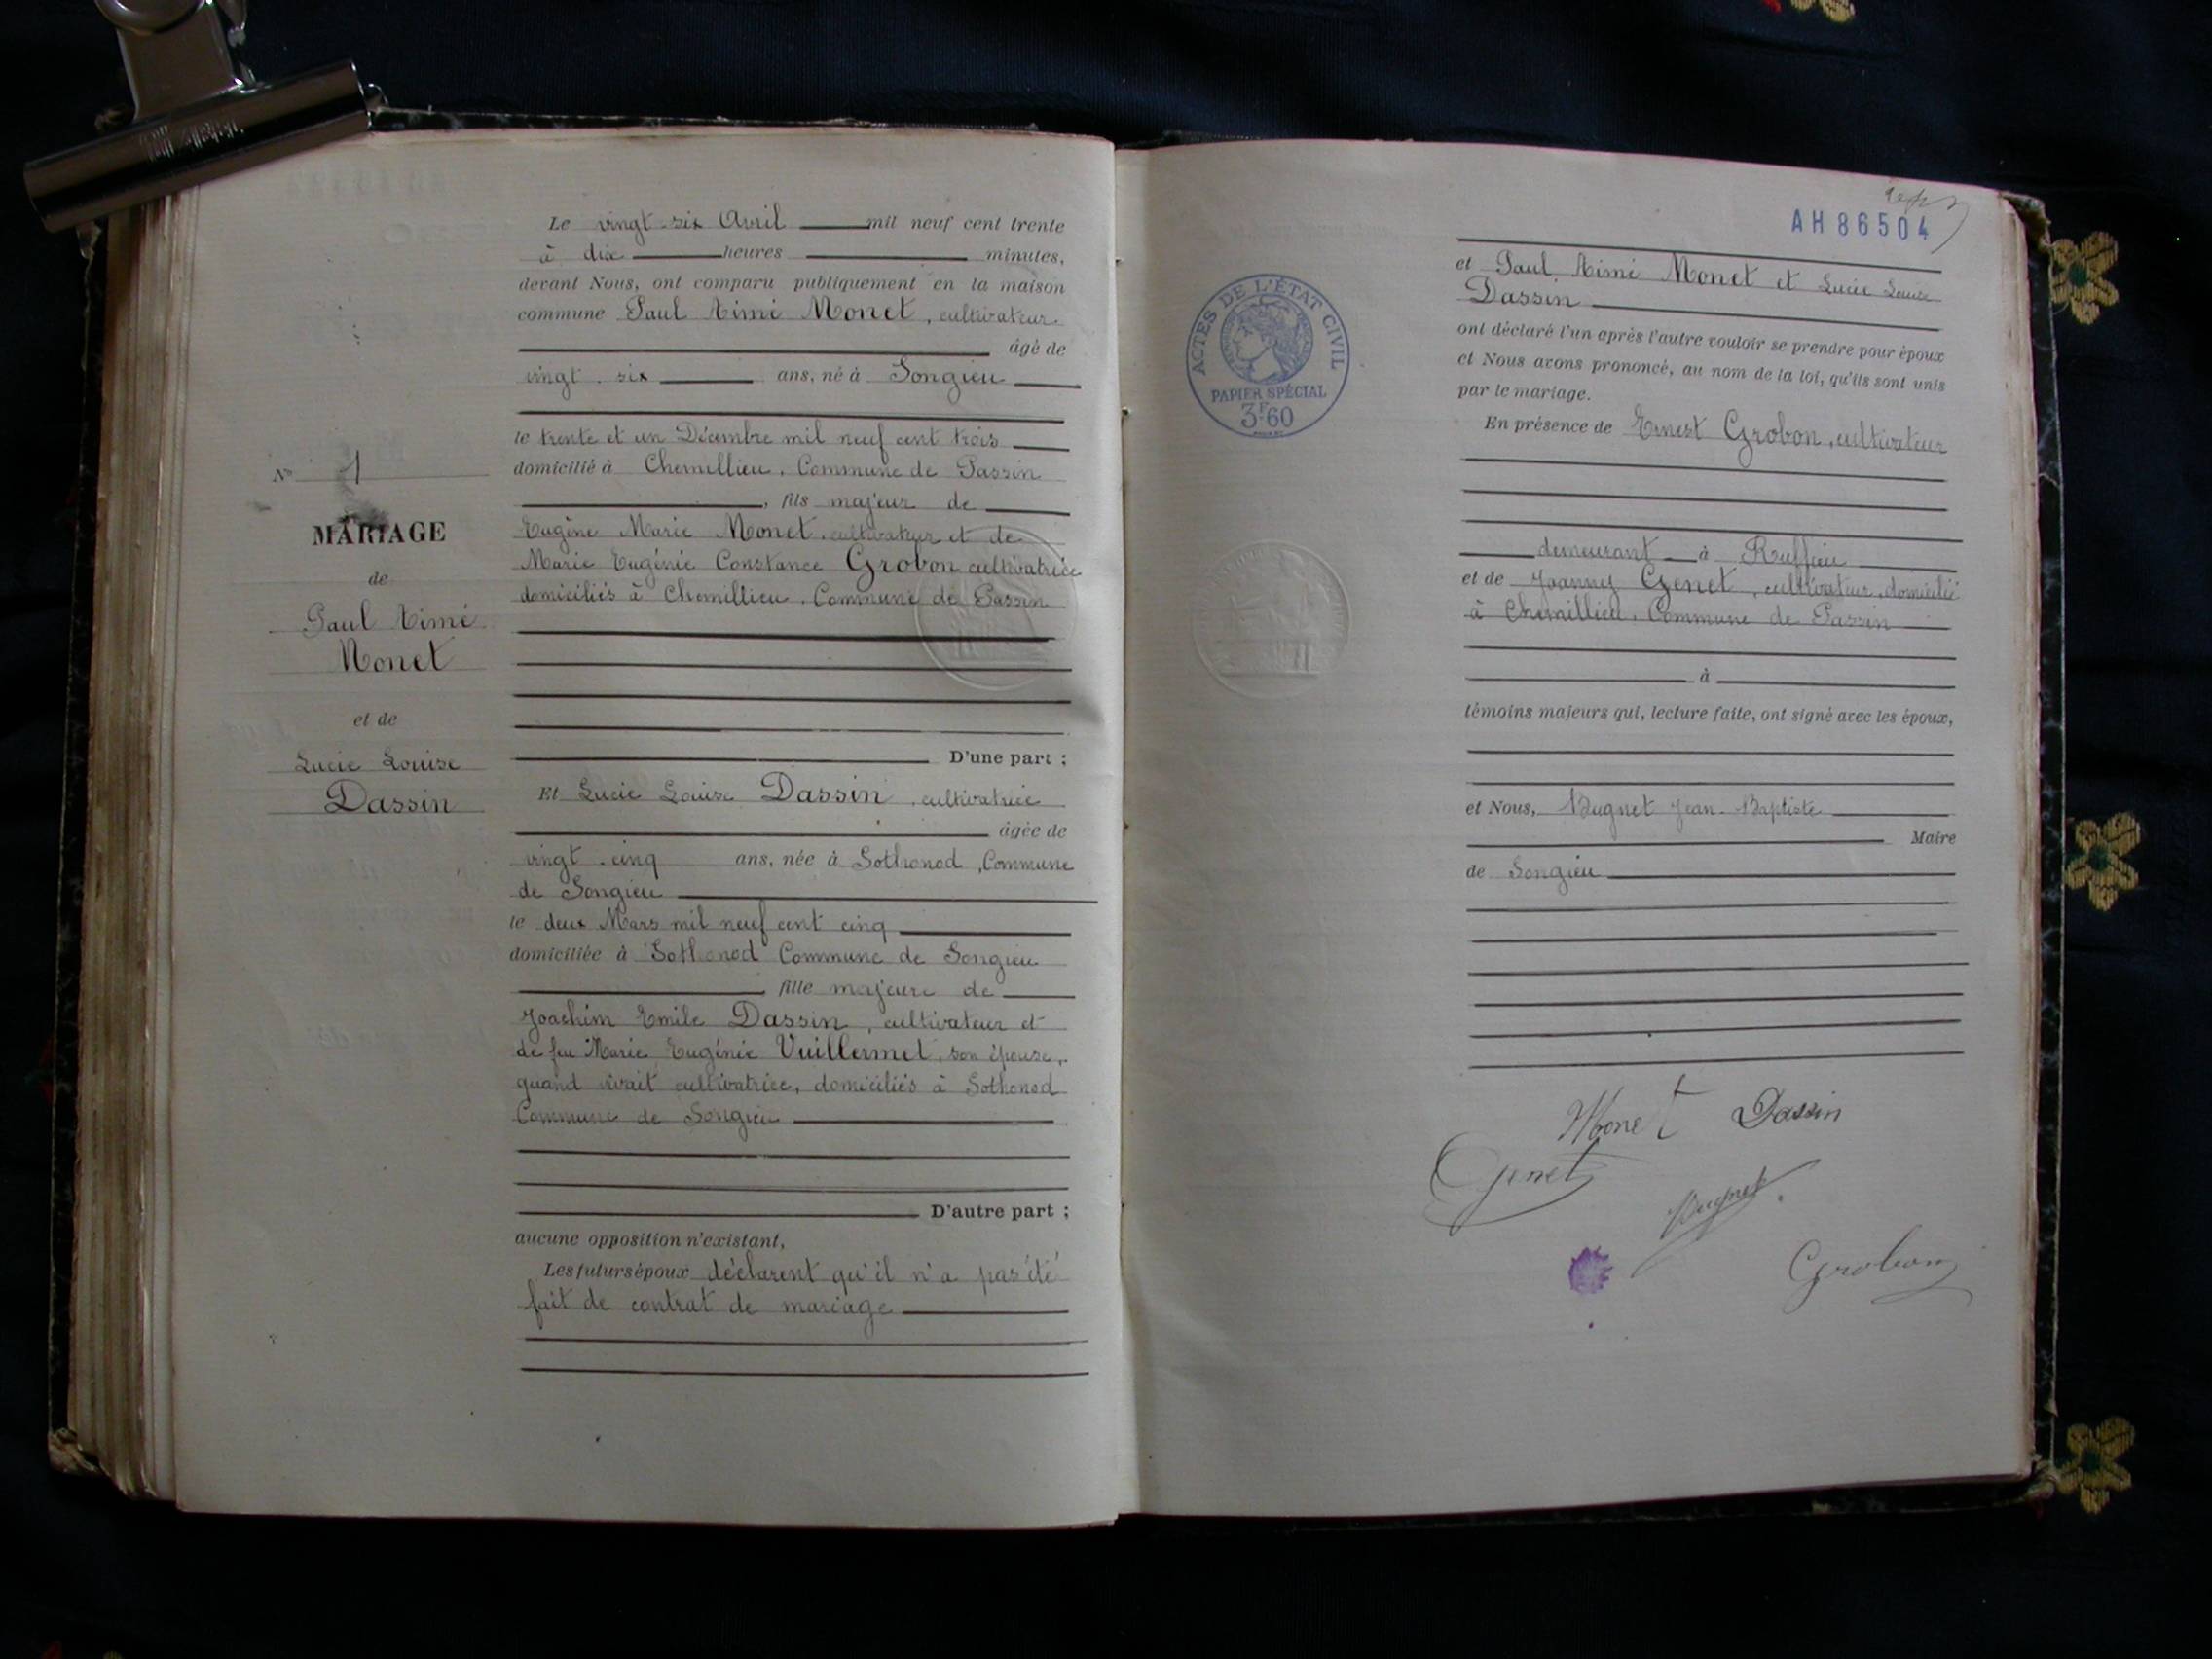 Le vingt-six Avril mil neuf cent trente
à dix heures minutes,
devant Nous, ont comparu publiquement en la maison
commune Paul Aimé Monet, cultivateur
âgé de
vingt-six ans, né à Songieu
le trente et un Décembre mil neuf cent trois
domicilié à Chemillieu, Commune de Passin
, fils majeur de
Eugène Marie Monet, cultivateur et de
Marie Eugénie Constance Grobon cultivatrice
domiciliés à Chemillieu, Commune de Passin
D'une part ;
Et Lucie Louise Dassin, cultivatrice
âgée de
vingt-cinq ans, née à Sothonod, Commune
de Songieu
le deux Mars mil neuf cent cinq
domiciliée à Sothonod Commune de Songieu
fille majeure de
Joachim Emile Dassin, cultivateur et
de feu Marie Eugénie Vuillermet, son épouse,
quand vivait cultivatrice, domiciliés à Sothonod
Commune de Songieu
D'autre part ;
aucune opposition n'existant,
Les futurs époux déclarent qu'il n'a pas été
fait de contrat de mariage
N° 1
MARIAGE
de
Paul Aimé
Monet
et de
Lucie Louise
Dassin
AH 86504
ACTES DE L'ÉTAT CIVIL
PAPIER SPÉCIAL
3F60
et Paul Aimé Monet et Lucie Louise
Dassin
ont déclaré l'un après l'autre vouloir se prendre pour époux
et Nous avons prononcé, au nom de la loi, qu'ils sont unis
par le mariage.
En présence de Ernest Grobon, cultivateur
demeurant à Ruffieu
et de Joanny Genet, cultivateur, domicilié
à Chemillieu, Commune de Passin
à
témoins majeurs qui, lecture faite, ont signé avec les époux,
et Nous, Bugnet Jean-Baptiste
Maire
de Songieu
Monet Dassin
Genet
Bugnet
Grobon